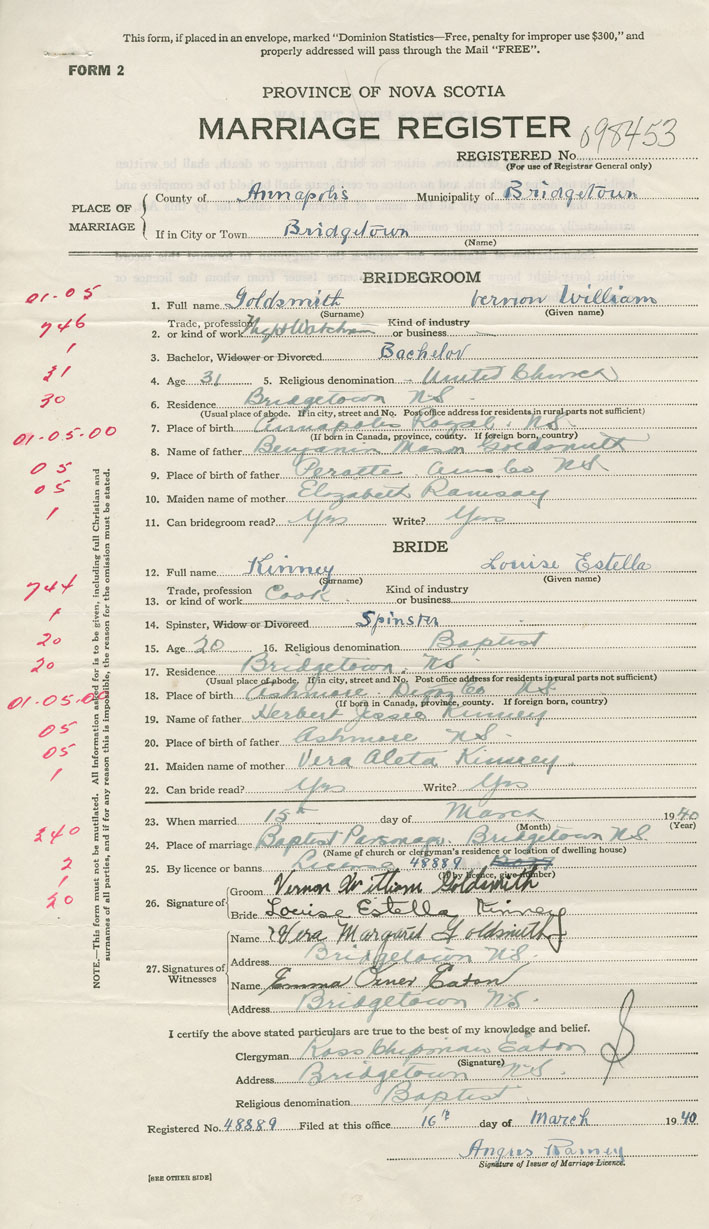 This form, if placed in an envelope, marked "Dominion Statistics—Free, penalty for improper use $300," and
properly addressed will pass through the Mail "FREE".
FORM 2
PROVINCE OF NOVA SCOTIA
MARRIAGE REGISTER 098453
REGISTERED No.
(For use of Registrar General only)
PLACE OF MARRIAGE
County of Annapolis Municipality of Bridgetown
If in City or Town Bridgetown
(Name)
BRIDEGROOM
01-05
1. Full name Goldsmith Vernon William
(Surname) (Given name)
746
Trade, profession Kind of industry
2. or kind of work Night Watchman or business
1
3. Bachelor, Widower or Divorced Bachelor
31
4. Age 31 5. Religious denomination United Church
30
6. Residence Bridgetown NS
(Usual place of abode. If in city, street and No. Post office address for residents in rural parts not sufficient)
01-05-00
7. Place of birth Annapolis Royal. NS
(If born in Canada, province, county. If foreign born, country)
8. Name of father Benjamin Mason Goldsmith
05
9. Place of birth of father Perotte Anna Co NS
05
10. Maiden name of mother Elizabeth Ramsay
1
11. Can bridegroom read? Yes Write? Yes
BRIDE
12. Full name Kinney Louise Estella
(Surname) (Given name)
744
Trade, profession Kind of industry
13. or kind of work Cook or business
1
14. Spinster, Widow or Divorced Spinster
20
15. Age 20 16. Religious denomination Baptist
20
17. Residence Bridgetown. NS
(Usual place of abode. If in city, street and No. Post office address for residents in rural parts not sufficient)
01-05-00
18. Place of birth Ashmore Digby Co NS.
(If born in Canada, province, county. If foreign born, country)
19. Name of father Herbert Jessea Kinney
05
20. Place of birth of father Ashmore NS.
05
21. Maiden name of mother Vera Aleta Kinney
1
22. Can bride read? Yes Write? Yes
23. When married 15th day of March 1940
(Month) (Year)
240
24. Place of marriage Baptist Parsonage Bridgetown N.S.
(Name of church or clergyman's residence or location of dwelling house)
2
25. By licence or banns License 48889
(If by licence, give number)
1
20
26. Signature of
Groom Vernon William Goldsmith
Bride Louise Estella Kinney
27. Signatures of Witnesses
Name Vera Margaret Goldsmith
Address Bridgetown NS.
Name Emma Eaton
Address Bridgetown NS.
I certify the above stated particulars are true to the best of my knowledge and belief.
Clergyman Ross Chipman Eaton
(Signature)
Address Bridgetown N.S.
Religious denomination Baptist
Registered No. 48889 Filed at this office 16th day of March 1940
Angres Ramey
Signature of Issuer of Marriage Licence.
[SEE OTHER SIDE]
NOTE.—This form must not be mutilated. All information asked for is to be given, including full Christian and
surnames of all parties, and if for any reason this is impossible, the reason for the omission must be stated.